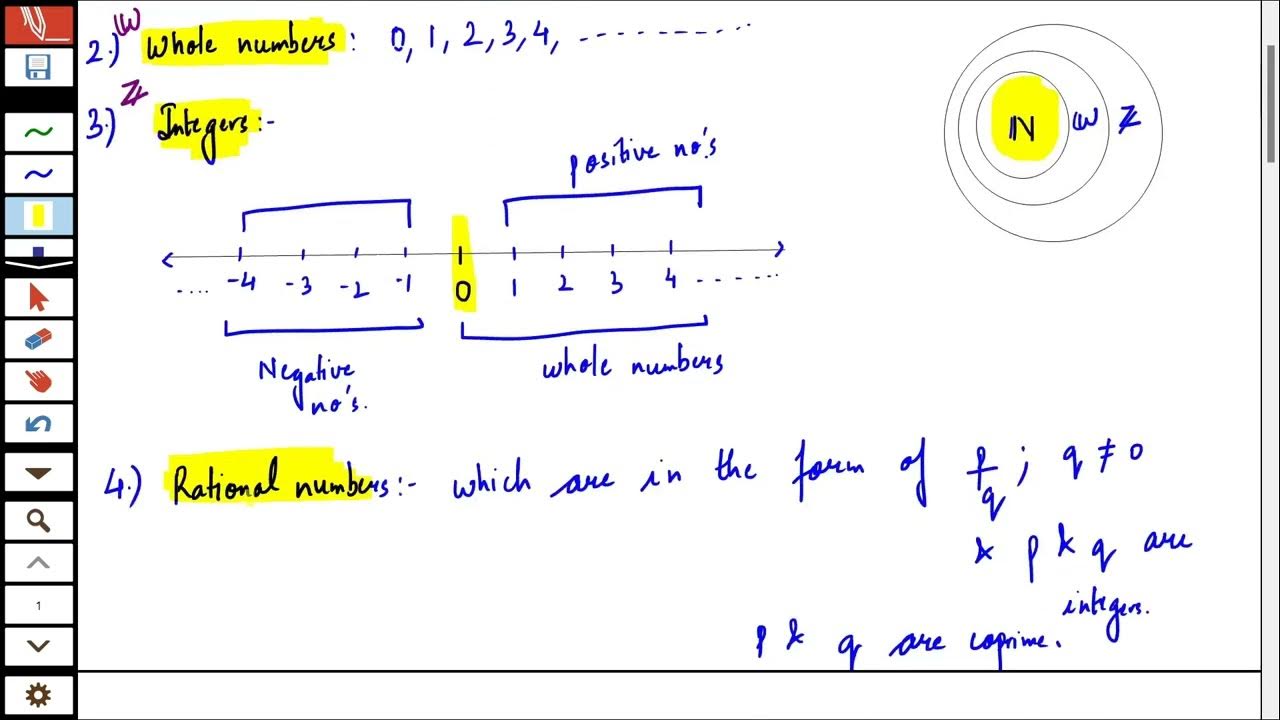 2.) W Whole numbers: 0, 1, 2, 3, 4, ----------
3.) Z Integers:-
N W Z
positive no's.
.... -4 -3 -2 -1 0 1 2 3 4 -------
Negative no's.
whole numbers
4.) Rational numbers:- which are in the form of p/q ; q ≠ 0
& p & q are
integers.
p & q are coprime.
1